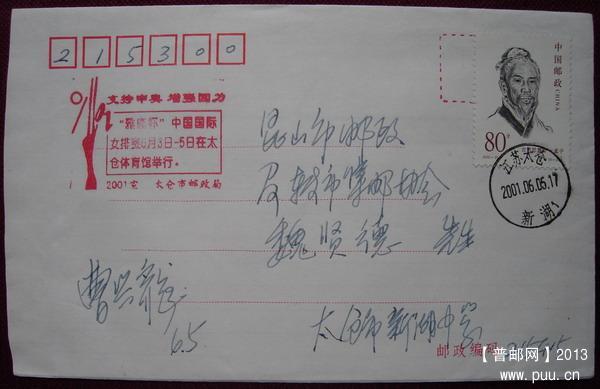 215300
中国邮政
CHINA
80分
支持申奥 增强国力
中国国际
女排赛6月3日-5日在太
仓体育馆举行。
2001宏 太仓市邮政局
江苏太仓
2001.06.05.17
新湖
昆山市邮政
集邮协会
魏贤德 先生
6.5
太仓市新湖中学
邮政编码
【普邮网】2013
www.puu.cn